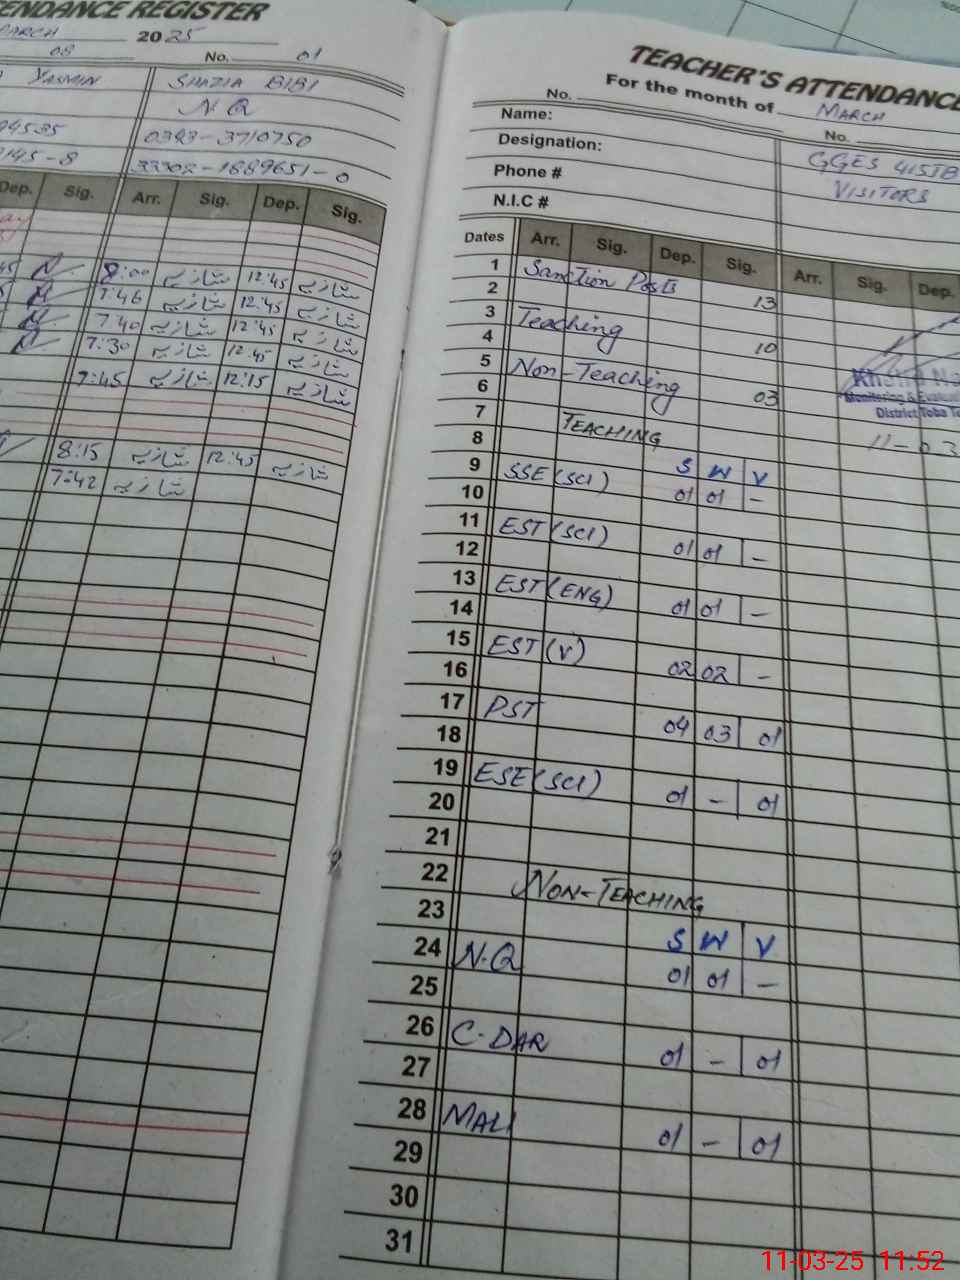 TENDANCE REGISTER
MARCH 2025
08 No. 01
YASMIN SHAZIA BIBI
N Q
94535 0343-3710750
3145-8 33302-1889651-0
Dep. Sig. Arr. Sig. Dep. Sig.
45 8:00 شازیہ 12:45 شازیہ
7:46 شازیہ 12:45 شازیہ
7:40 شازیہ 12:45 شازیہ
7:30 شازیہ 12:45 شازیہ
7:45 شازیہ 12:15 شازیہ
8:15 شازیہ 12:45 شازیہ
7:42 شازیہ
TEACHER'S ATTENDANCE
For the month of MARCH
No. No.
Name: GGES 415TB
Designation: VISITORS
Phone #
N.I.C #
Dates Arr. Sig. Dep. Sig. Arr. Sig. Dep.
1 Sanction Posts
2 13
3 Teaching
4 10
5 Non-Teaching
6 03
Khalid Na
Monitoring & Evaluat
District Toba Te
11-03
7 TEACHING
8 S W V
9 SSE (SCI)
10 01 01 -
11 EST (SCI)
12 01 01 -
13 EST (ENG)
14 01 01 -
15 EST (V)
16 02 02 -
17 PST
18 04 03 01
19 ESE (SCI)
20 01 - 01
21
22 NON-TEACHING
23 S W V
24 N-Q
25 01 01 -
26 C-DAR
27 01 - 01
28 MALI
29 01 - 01
30
31
11-03-25 11:52